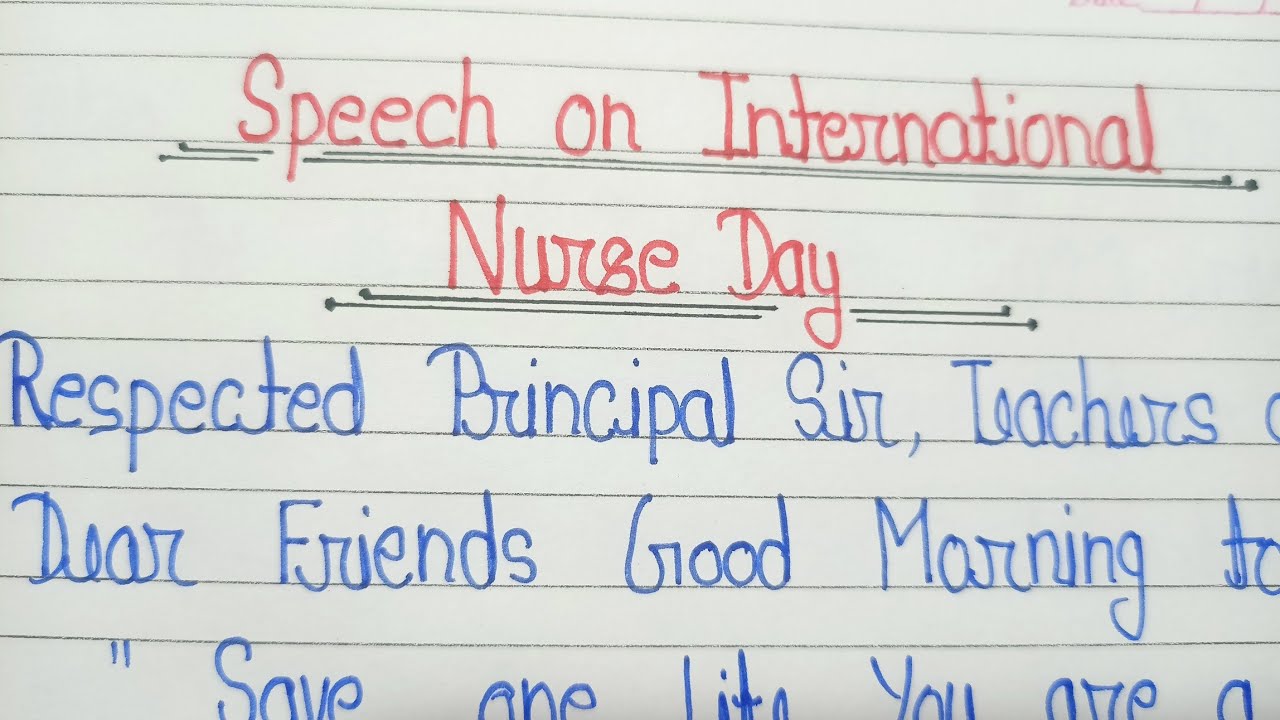 Speech on International
Nurse Day
Respected Principal Sir, Teachers
Dear Friends Good Morning to
" Save one Life You are a